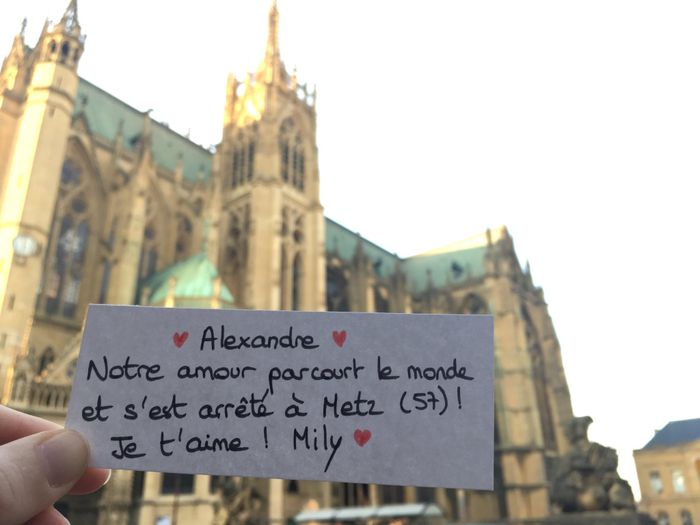 ♥ Alexandre ♥
Notre amour parcourt le monde
et s'est arrêté à Metz (57) !
Je t'aime ! Mily ♥